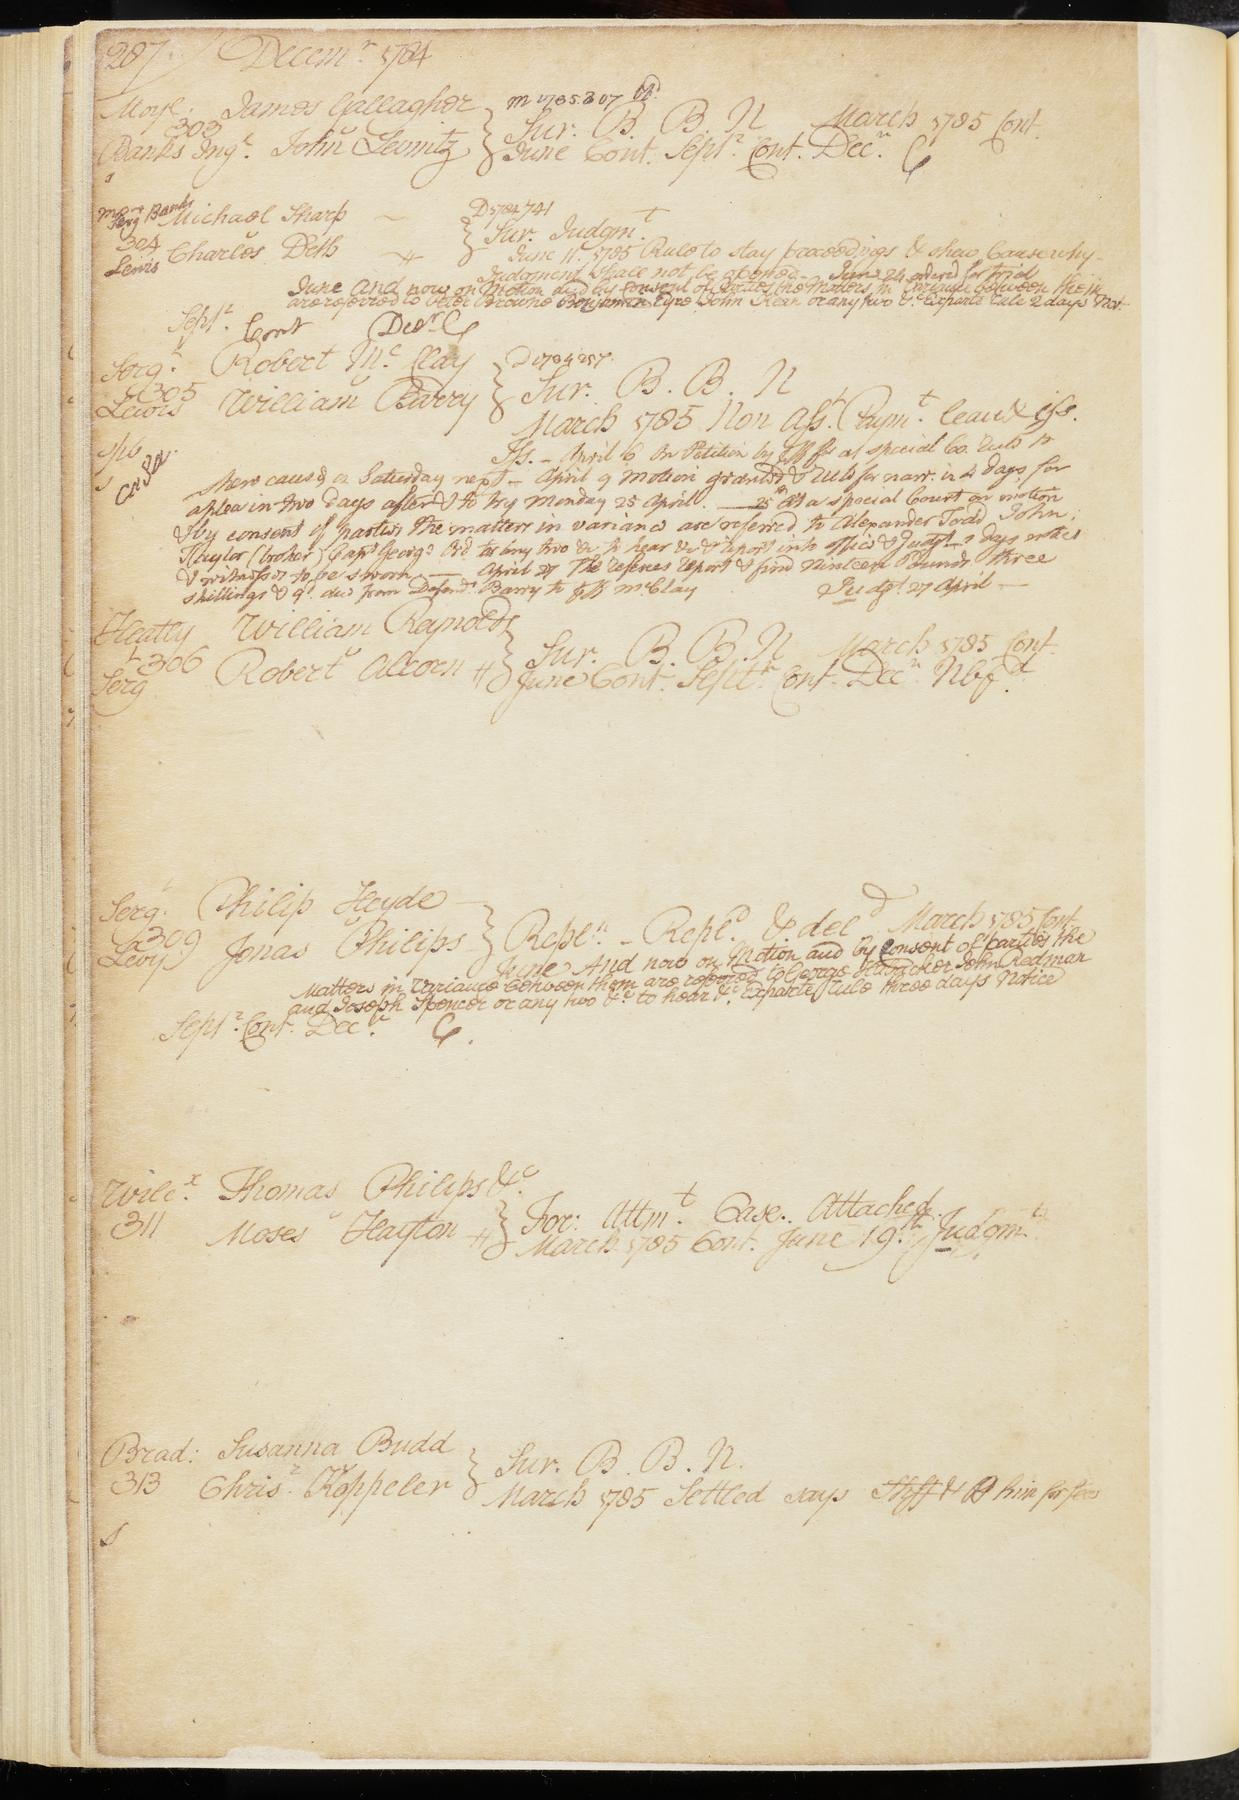 287 / Decem.r 1784
Moyl. James Gallagher } M 1785.307
303 Sur. B. B. N March 1785 Cont.
Banks Ing.r John Leonitz June Cont. Sept.r Cont. Dec.r C
s
Serg Banks Michael Sharp D 1784 741
304 Sur. Judgm.t
Lewis Charles Deth June 11. 1785 Rule to stay proceedings & shew Cause why
Judgment shall not be opened June 24 ordered for trial
June And now on Motion and by Consent of Parties the Matters in Variance between them
are referred to Peter Browne Benjamin Eyre John Kean or any two &c Exparte rule 2 days Not.
Sept.r Cont Dec.r C
Serg.t Robert Mc Clay } D 1784 257
305 Sur. B. B. N
Lewis William Barry
March 1785 Non Ass.t Paym.t leave & iss.
Iss. - April 6 On Petition by Plffs as special Co. rule to
s Ca Sa
shew cause on Saturday next - April 9 Motion granted & rule for narr. in 2 days for
a plea in two days after & to try Monday 25 April. 25th At a special Court on motion
& by consent of parties the matters in variance are referred to Alexander Todd John
Naylor (broker) Cap.t George Ord or any two &c to hear &c & report into office & Judgt 2 days notice
& witnesses to be sworn April 27 The referees report & find nineteen Pounds three
shillings & 9d. due from Defend.t Barry to plff McClay Judgt. 27 April
Heatly William Reynolds }
306 Sur. B. B. N March 1785 Cont.
Serg Robert Alcorn June Cont. Sept.r Cont. Dec.r
Serg. Philip Heyde
309 } Repl.n - Repl.d & del.d March 1785 Cont.
Levy Jonas Philips
June And now on Motion and by Consent of parties the
Matters in Variance between them are referred to George John Redman
and Joseph Spencer or any two &c to hear &c. Exparte rule three days Notice
Sept.r Cont. Dec.r C.
Wilc.x Thomas Philips &c.
311 } For: Attm.t Case. Attached.
Moses Hayton March 1785 Cont. June 19.th Judgm.t
Brad: Susanna Budd } Sur. B. B. N.
313 Chris.r Koppeler March 1785 Settled says Plff & him for fees
s